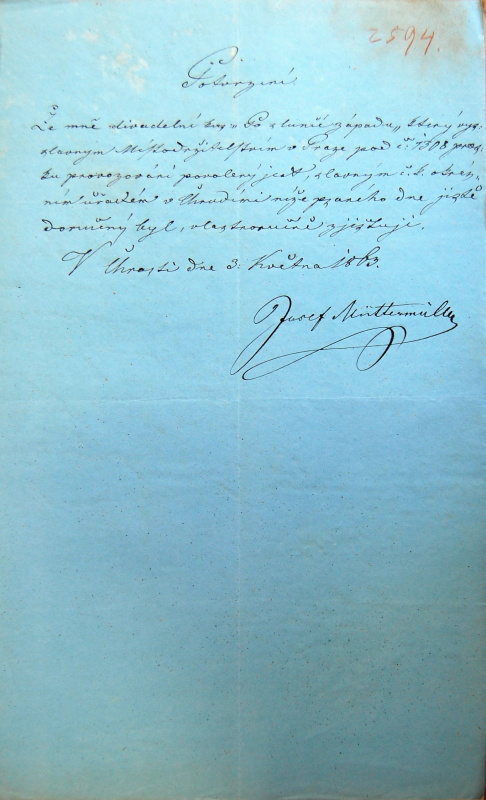 2594.
Potvrzení
Že mně divadelní kus „Po slunce západu„ který vys.
slavným Místodržitelstvím v Praze pod č. 1308 pro
ku provozování povolený jest, slavným c. k. okres-
ním úřadem v Chrudimi níže psaného dne jistě
doručený byl, vlastnoručně zjišťuji.
V Chrasti dne 3. Května 1863.
Josef Müttermüller